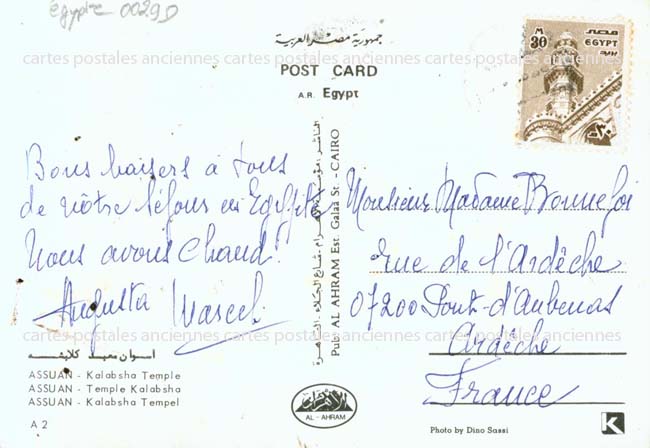 égypte 0029D
جمهورية مصر العربية
POST CARD
A.R. Egypt
30 M مصر
EGYPT
cartes postales anciennes cartes postales anciennes cartes postales anciennes
Bons baisers à tous
de nôtre séjour en Egypte
Nous avons Chaud!
Augusta Marcel
Publ. AL AHRAM Est. Galaa St. - CAIRO
Monsieur Madame Bonnefoi
rue de l'Ardèche
07200 Pont-d'Aubenas
Ardèche
France
cartes postales anciennes cartes postales anciennes cartes postales anciennes
اسوان معبد كلابشه
ASSUAN - Kalabsha Temple
ASSUAN - Temple Kalabsha
ASSUAN - Kalabsha Tempel
A 2
الأهرام
AL - AHRAM
Photo by Dino Sassi
K